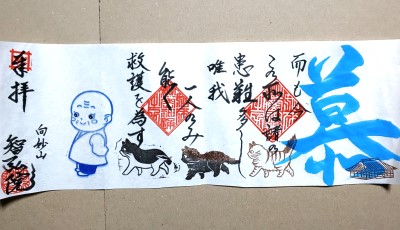 慕
而も今
この処は諸の
患難多し
唯我
一人のみ
能く
救護を為す
向妙山
智弘院
奉拝